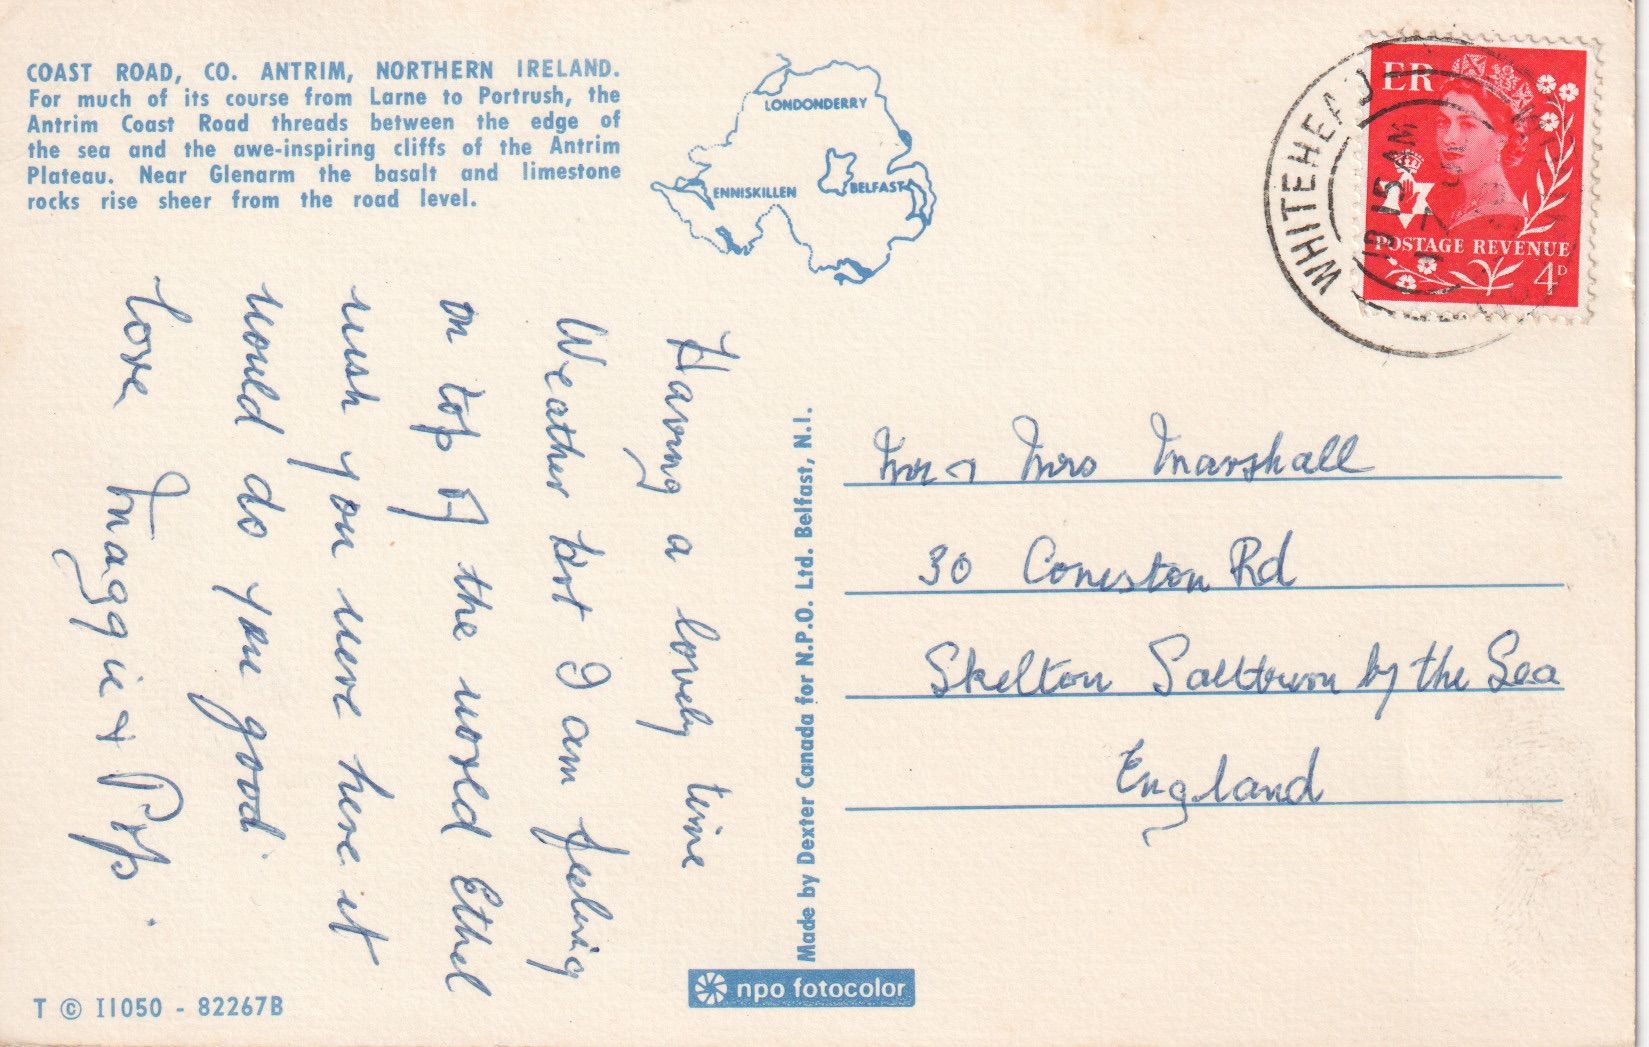 COAST ROAD, CO. ANTRIM, NORTHERN IRELAND.
For much of its course from Larne to Portrush, the
Antrim Coast Road threads between the edge of
the sea and the awe-inspiring cliffs of the Antrim
Plateau. Near Glenarm the basalt and limestone
rocks rise sheer from the road level.
LONDONDERRY
ENNISKILLEN
BELFAST
WHITEHEAD
ER
POSTAGE REVENUE
4D
Having a lovely time
Weather hot I am feeling
on top of the world Ethel
wish you were here it
would do you good.
love Maggie & Pop.
Made by Dexter Canada for N.P.O. Ltd. Belfast, N.I.
Mr & Mrs Marshall
30 Coniston Rd
Skelton Saltburn by the Sea
England
T © II050 - 82267B
npo fotocolor